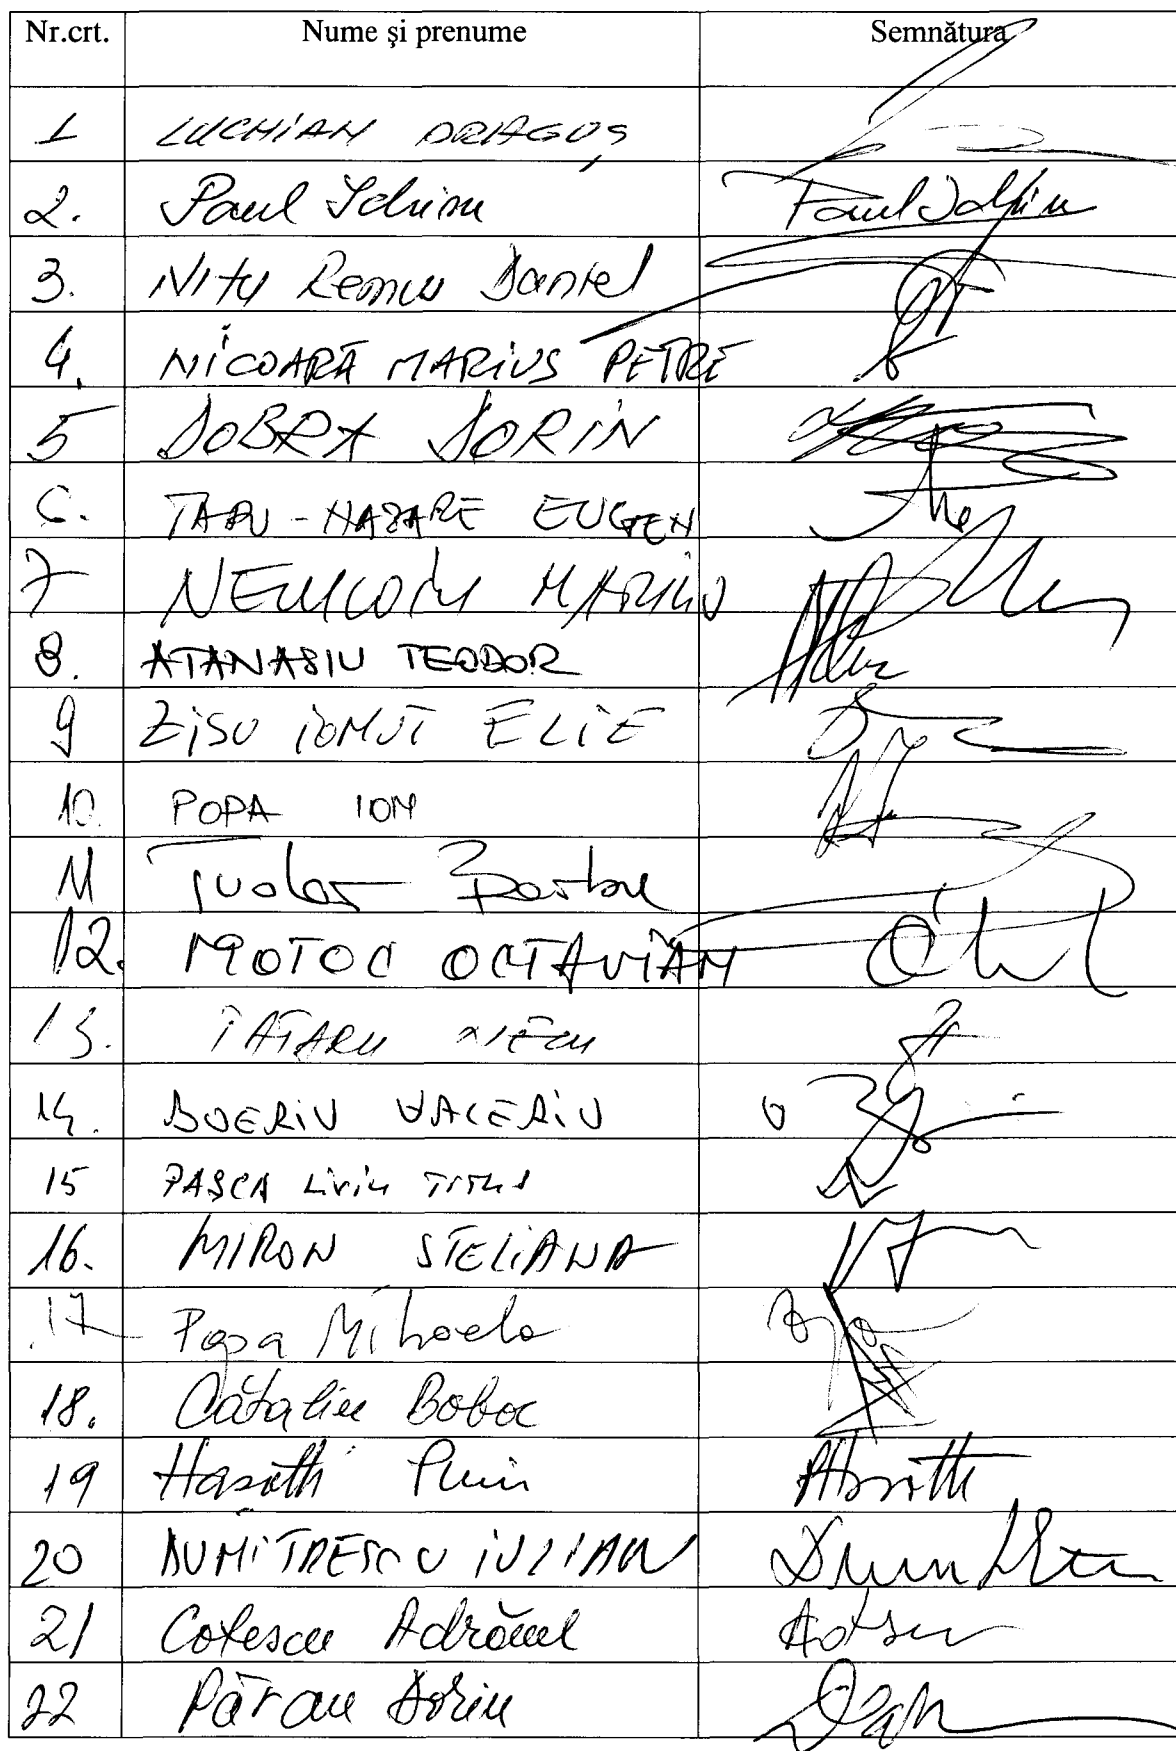 Nr.crt. Nume şi prenume Semnătura
1 LUCHiAN DRAGOŞ
2. Paul Ichim Paul Ichim
3. Nițu Remus Daniel
4. NiCOARĂ MARiUS PETRE
5 DOBRA DORIN
6. TABU-NAZARE EUGEN
7 MARIUS
8. ATANASIU TEODOR
9 ZiSU iONUȚ ELiE
10. POPA ION
11 Tudor Barbu
12. MOTOC OCTAVIAN
13. TĂTARU NECU
14. BOERiU VALERiU
15 PAŞCA LiViU TITUS
16. MIRON STELiANA
17 Popa Mihaela
18. Cătălin Boboc
19 Hașotti Puiu Hașotti
20 DUMiTRESCU iULIAN
21 Cotescu Adrănel
22 Păran Dorin